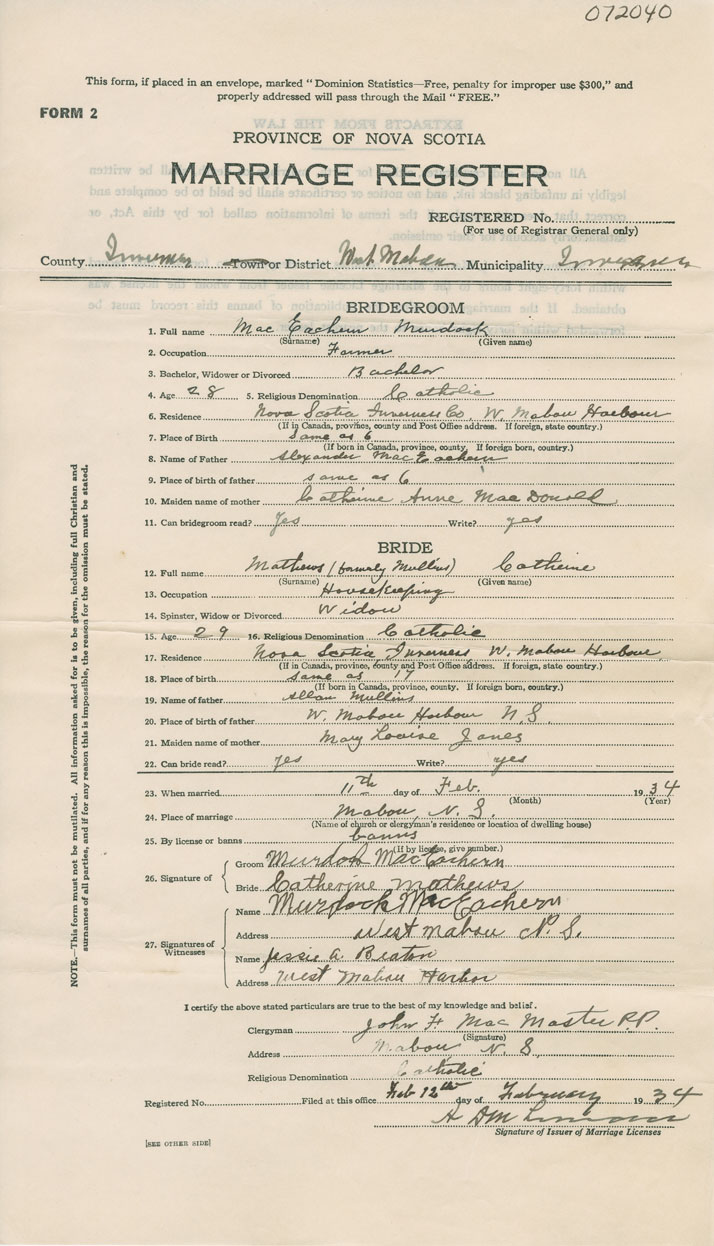 072040
This form, if placed in an envelope, marked "Dominion Statistics—Free, penalty for improper use $300," and
properly addressed will pass through the Mail "FREE."
FORM 2
PROVINCE OF NOVA SCOTIA
MARRIAGE REGISTER
REGISTERED No.
(For use of Registrar General only)
County Inverness Town or District West Mabou Municipality Inverness
BRIDEGROOM
1. Full name Mac Eachern Murdock
(Surname) (Given name)
2. Occupation Farmer
3. Bachelor, Widower or Divorced Bachelor
4. Age 28 5. Religious Denomination Catholic
6. Residence Nova Scotia Inverness Co. W. Mabou Harbour
(If in Canada, province, county and Post Office address. If foreign, state country.)
7. Place of Birth same as 6
(If born in Canada, province, county. If foreign born, country.)
8. Name of Father Alexander MacEachern
9. Place of birth of father same as 6
10. Maiden name of mother Catherine Anne MacDonald
11. Can bridegroom read? Yes Write? yes
BRIDE
12. Full name Mathews (formerly Mullins) Catherine
(Surname) (Given name)
13. Occupation Housekeeping
14. Spinster, Widow or Divorced Widow
15. Age 29 16. Religious Denomination Catholic
17. Residence Nova Scotia Inverness W. Mabou Harbour
(If in Canada, province, county and Post Office address. If foreign, state country.)
18. Place of Birth same as 17
(If born in Canada, province, county. If foreign born, country.)
19. Name of father Allan Mullins
20. Place of birth of father W. Mabou Harbour N S.
21. Maiden name of mother Mary Louise Janes
22. Can bride read? yes Write? yes
23. When married 11th day of Feb. 1934
(Month) (Year)
24. Place of marriage Mabou, N. S.
(Name of church or clergyman's residence or location of dwelling house)
25. By license or banns banns
(If by license, give number.)
26. Signature of
Groom Murdoch MacEachern
Bride Catherine Mathews
27. Signatures of Witnesses
Name Murdock MacEachern
Address West Mabou N. S.
Name Jessie A. Beaton
Address West Mabou Harbor
I certify the above stated particulars are true to the best of my knowledge and belief.
Clergyman John F. MacMaster P.P.
(Signature)
Address Mabou N. S.
Religious Denomination Catholic
Registered No. Filed at this office Feb 12th day of February 1934
Signature of Issuer of Marriage Licenses
[SEE OTHER SIDE]
NOTE.—This form must not be mutilated. All information asked for is to be given, including full Christian and
surnames of all parties, and if for any reason this is impossible, the reason for the omission must be stated.